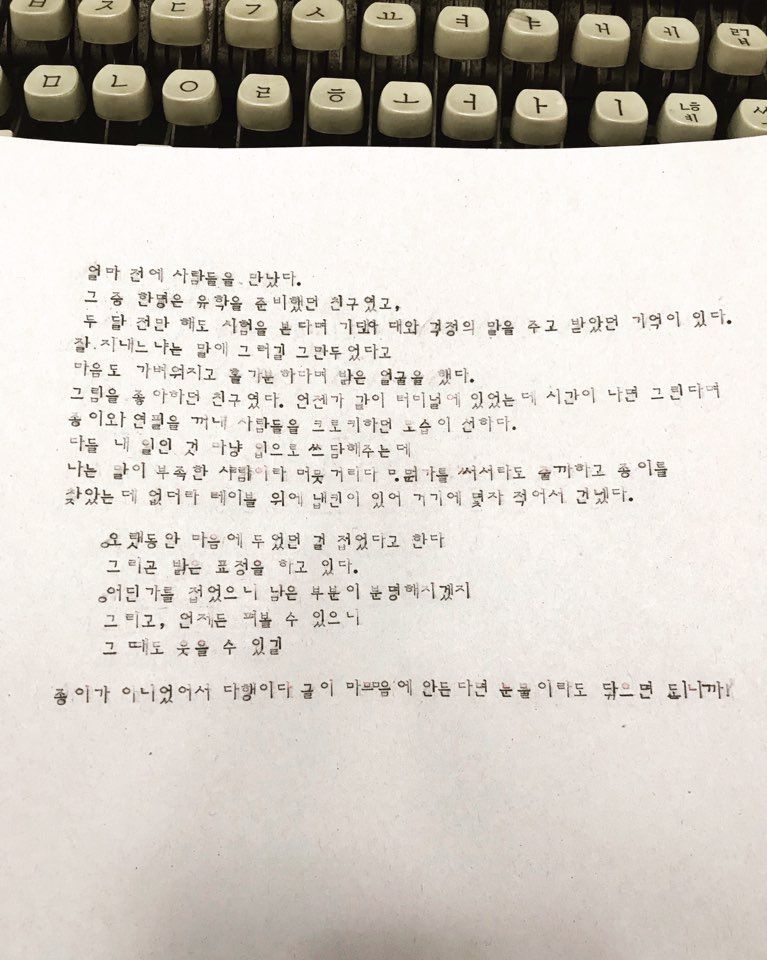 ㅂ ㅈ ㄷ ㄱ ㅅ ㅛ ㅕ ㅑ ㅔ ㅖ 럽
ㅁ ㄴ ㅇ ㄹ ㅎ ㅗ ㅓ ㅏ ㅣ
얼마 전에 사람들을 만났다.
그 중 한명은 유학을 준비했던 친구였고,
두 달 전만 해도 시험을 본다며 대와 걱정의 말을 주고 받았던 기억이 있다.
잘 지내느냐는 말에 그러길 그만두었다고
마음도 가벼워지고 홀가분하다며 밝은 얼굴을 했다.
그림을 좋아하던 친구였다. 언젠가 같이 터미널에 있었는데 시간이 나면 그린다며
종이와 연필을 꺼내 사람들을 크로키하던 모습이 선하다.
다들 내 일인 것 마냥 입으로 쓰담해주는데
나는 말이 부족한 사람이라 머뭇거리다 뭔가를 써서라도 줄까하고 종이를
찾았는데 없더라 테이블 위에 냅킨이 있어 거기에 몇자 적어서 건넸다.
오랫동안 마음에 두었던 걸 접었다고 한다
그리곤 밝은 표정을 하고 있다.
어딘가를 접었으니 남은 부분이 분명해지겠지
그리고, 언제든 펴볼 수 있으니
그 때도 웃을 수 있길
종이가 아니었어서 다행이다 글이 마음에 안든다면 눈물이라도 닦으면 되니까!